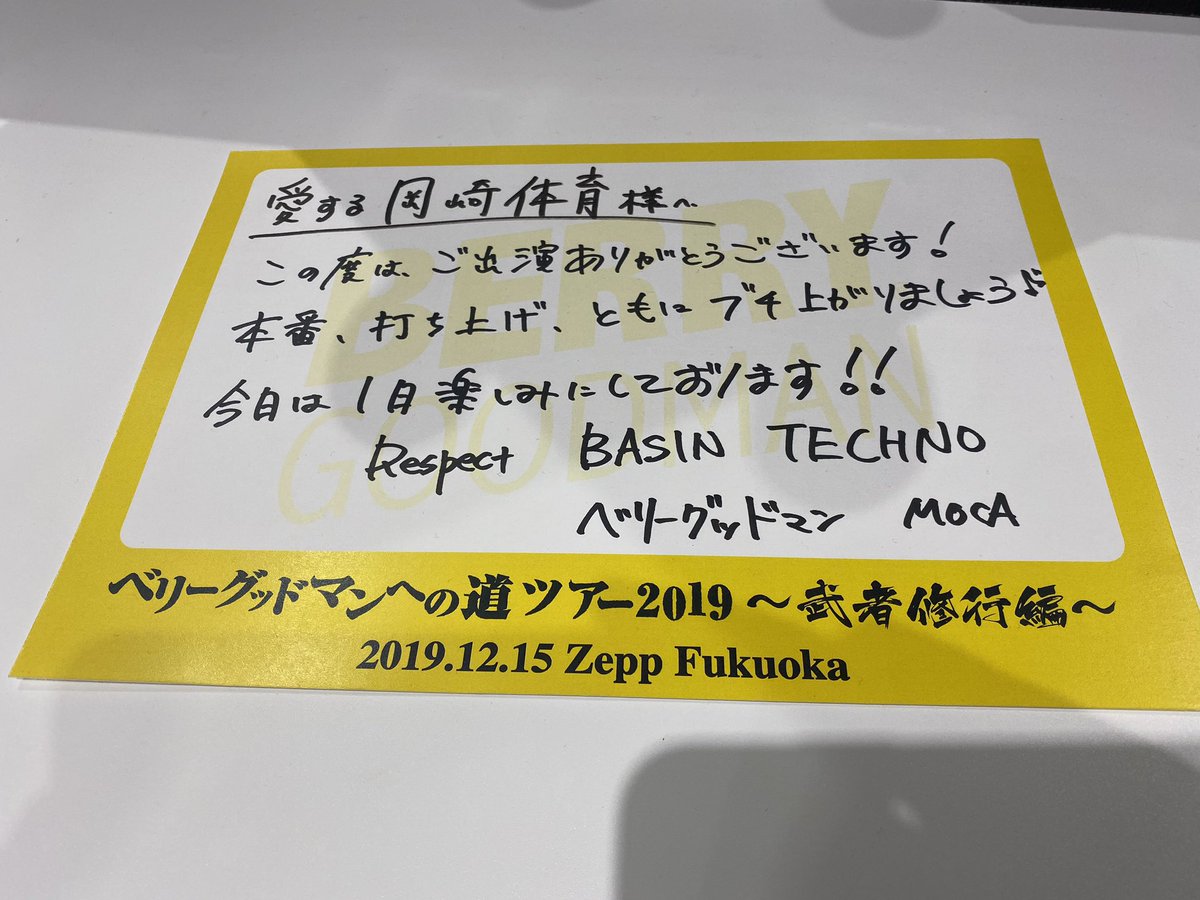 愛する岡崎体育様へ
この度は、ご出演ありがとうございます!
本番、打ち上げ、ともにブチ上がりましょう♪
今日は1日楽しみにしております!!
Respect BASIN TECHNO
ベリーグッドマン MOCA
BERRY
GOODMAN
ベリーグッドマンへの道ツアー2019 ～武者修行編～
2019.12.15 Zepp Fukuoka